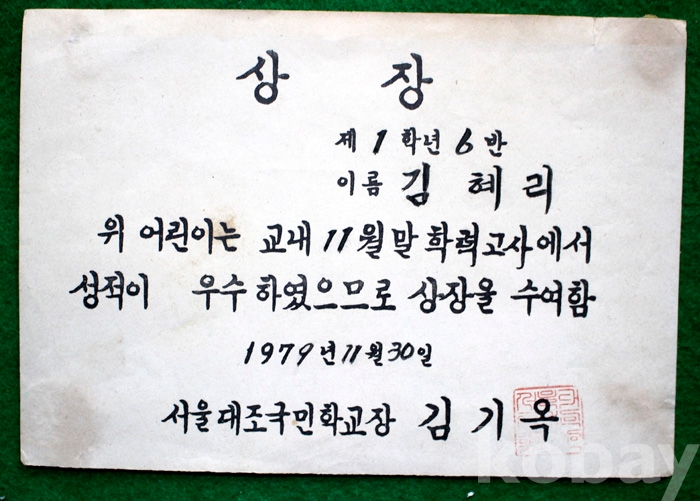 상 장
제 1 학년 6 반
이름 김 혜 리
위 어린이는 교내 11월말 학력고사에서
성적이 우수하였으므로 상장을 수여함
1979년 11월 30일
서울대조국민학교장 김 기 옥
kobay